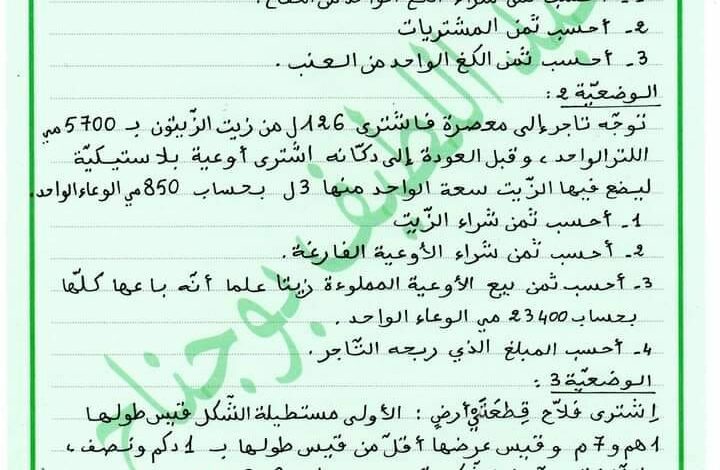 1ـ أحسب ثمن شراء الكغ الواحد من
2ـ أحسب ثمن المشتريات
3ـ أحسب ثمن الكغ الواحد من العنب .
الوضعيّة 2 :
توجّه تاجر إلى معصرة فاشترى 126 ل من زيت الزّيتون بـ 5700 مي
اللتر الواحد ، و قبل العودة إلى دكّانه اشترى أوعية بلاستيكيّة
ليضع فيها الزّيت سعة الواحد منها 3 ل بحساب 850 مي الوعاء الواحد.
1ـ أحسب ثمن شراء الزّيت
2ـ أحسب ثمن شراء الأوعية الفارغة .
3ـ أحسب ثمن بيع الأوعية المملوءة زيتا علما أنّه باعها كلّها
بحساب 23400 مي الوعاء الواحد .
4ـ أحسب المبلغ الذي ربحه التّاجر .
الوضعيّة 3 :
اِشترى فلاّح قطعتَيْ أرضٍ : الأولى مستطيلة الشّكل قيس طولها
1 هم و 7 م و قيس عرضها أقلّ من قيس طولها بـ 1 دكم ونصف ،
عبد اللطيف بوجناح